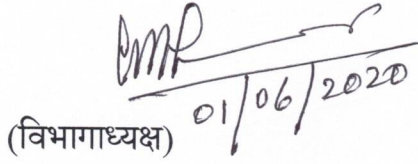 01/06/2020
(विभागाध्यक्ष)